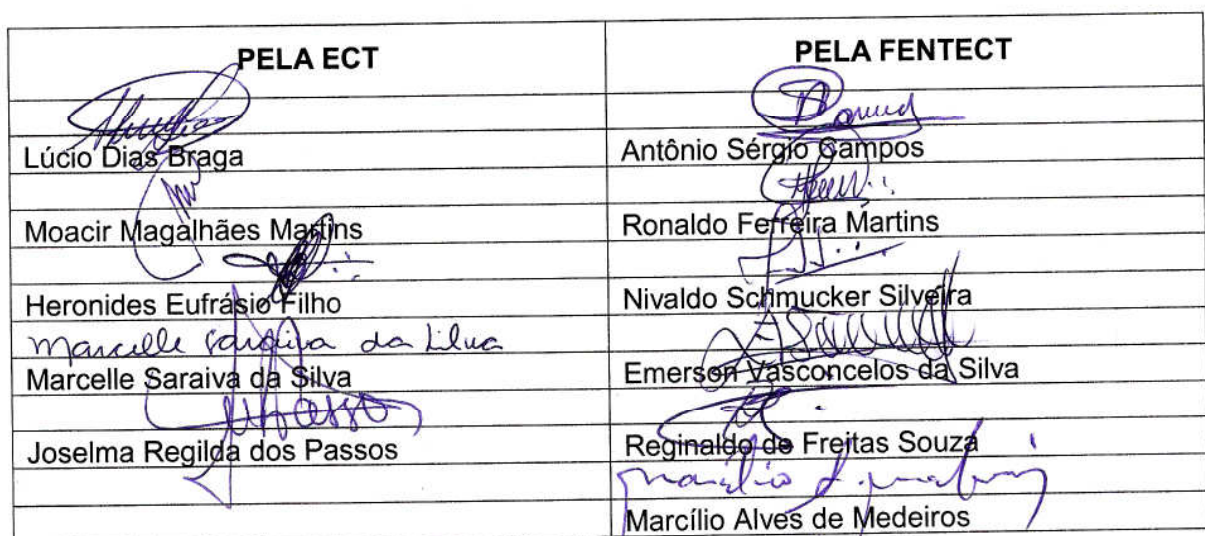 PELA ECT PELA FENTECT
Lúcio Dias Braga Antônio Sérgio Campos
Moacir Magalhães Martins Ronaldo Ferreira Martins
Heronides Eufrásio Filho Nivaldo Schmucker Silveira
Marcelle Saraiva da Silva
Marcelle Saraiva da Silva Emerson Vasconcelos da Silva
Joselma Regilda dos Passos Reginaldo de Freitas Souza
Marcílio Alves de Medeiros